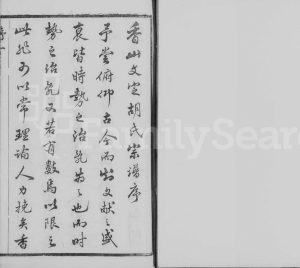 香山文定胡氏宗譜序
予嘗俯仰古今而知文献之盛
衰皆時勢之治乱為之也而时
勢之治乱又若有數焉以限之
此非可以常理論人力挽矣香
FamilySear